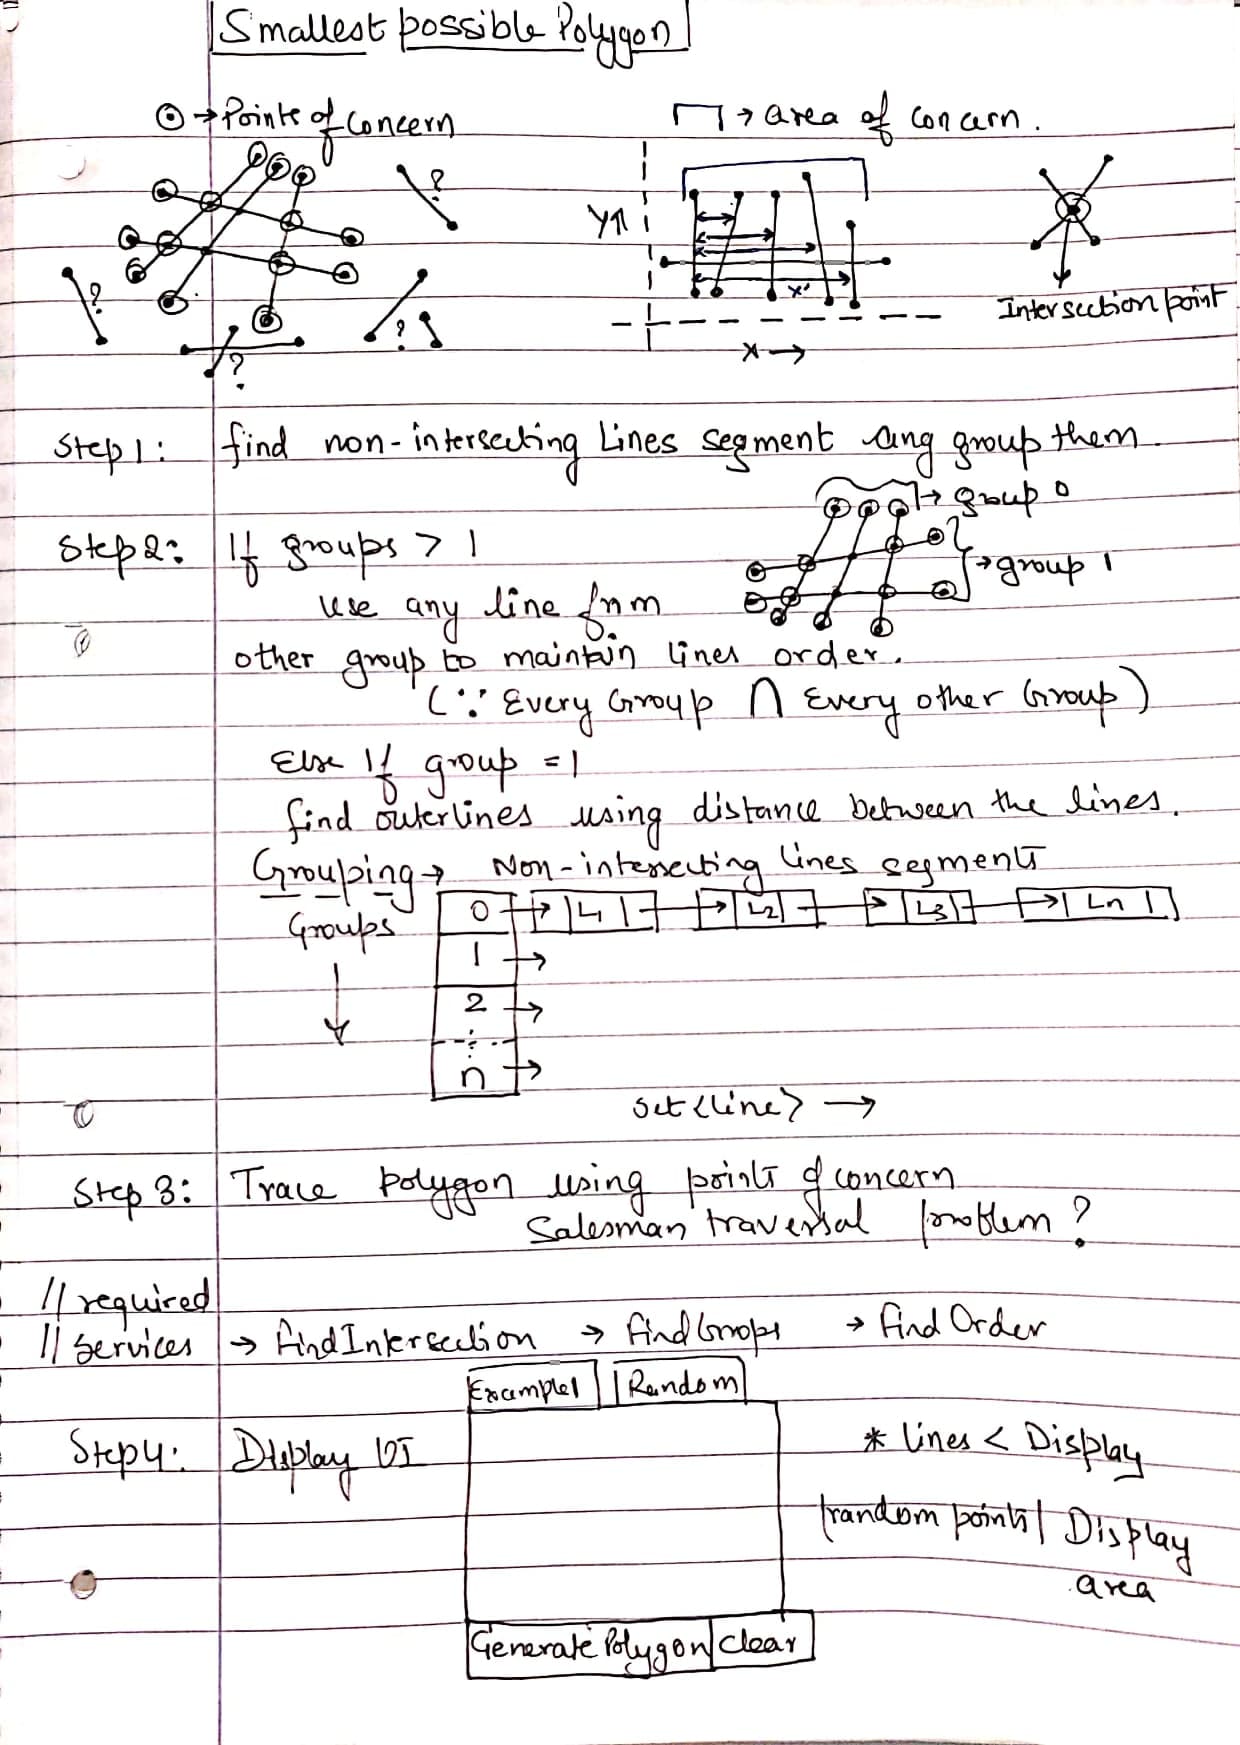 Smallest possible Polygon
⊙ → Points of Concern
→ area of concern.
?
Y↑
?
?
?
?
x'
x →
Intersection point
Step 1: find non-intersecting Lines segment ang group them
→ group 0
Step 2: If groups > 1
→ group 1
use any line from
other group to maintain lines order.
(∵ Every Group ∩ Every other Group)
Else If group = 1
find outerlines using distance between the lines.
Grouping → Non-intersecting lines segments
Groups 0 → L1 → L2 → L3 → Ln
1 →
2 →
n →
Set <line> →
Step 3: Trace polygon using points of concern
Salesman traversal problem?
// required
// services → findIntersection → findGroups → findOrder
Example1 Random
Step 4: Display UI
* lines < Display
|random points| Display
area
Generate Polygon Clear